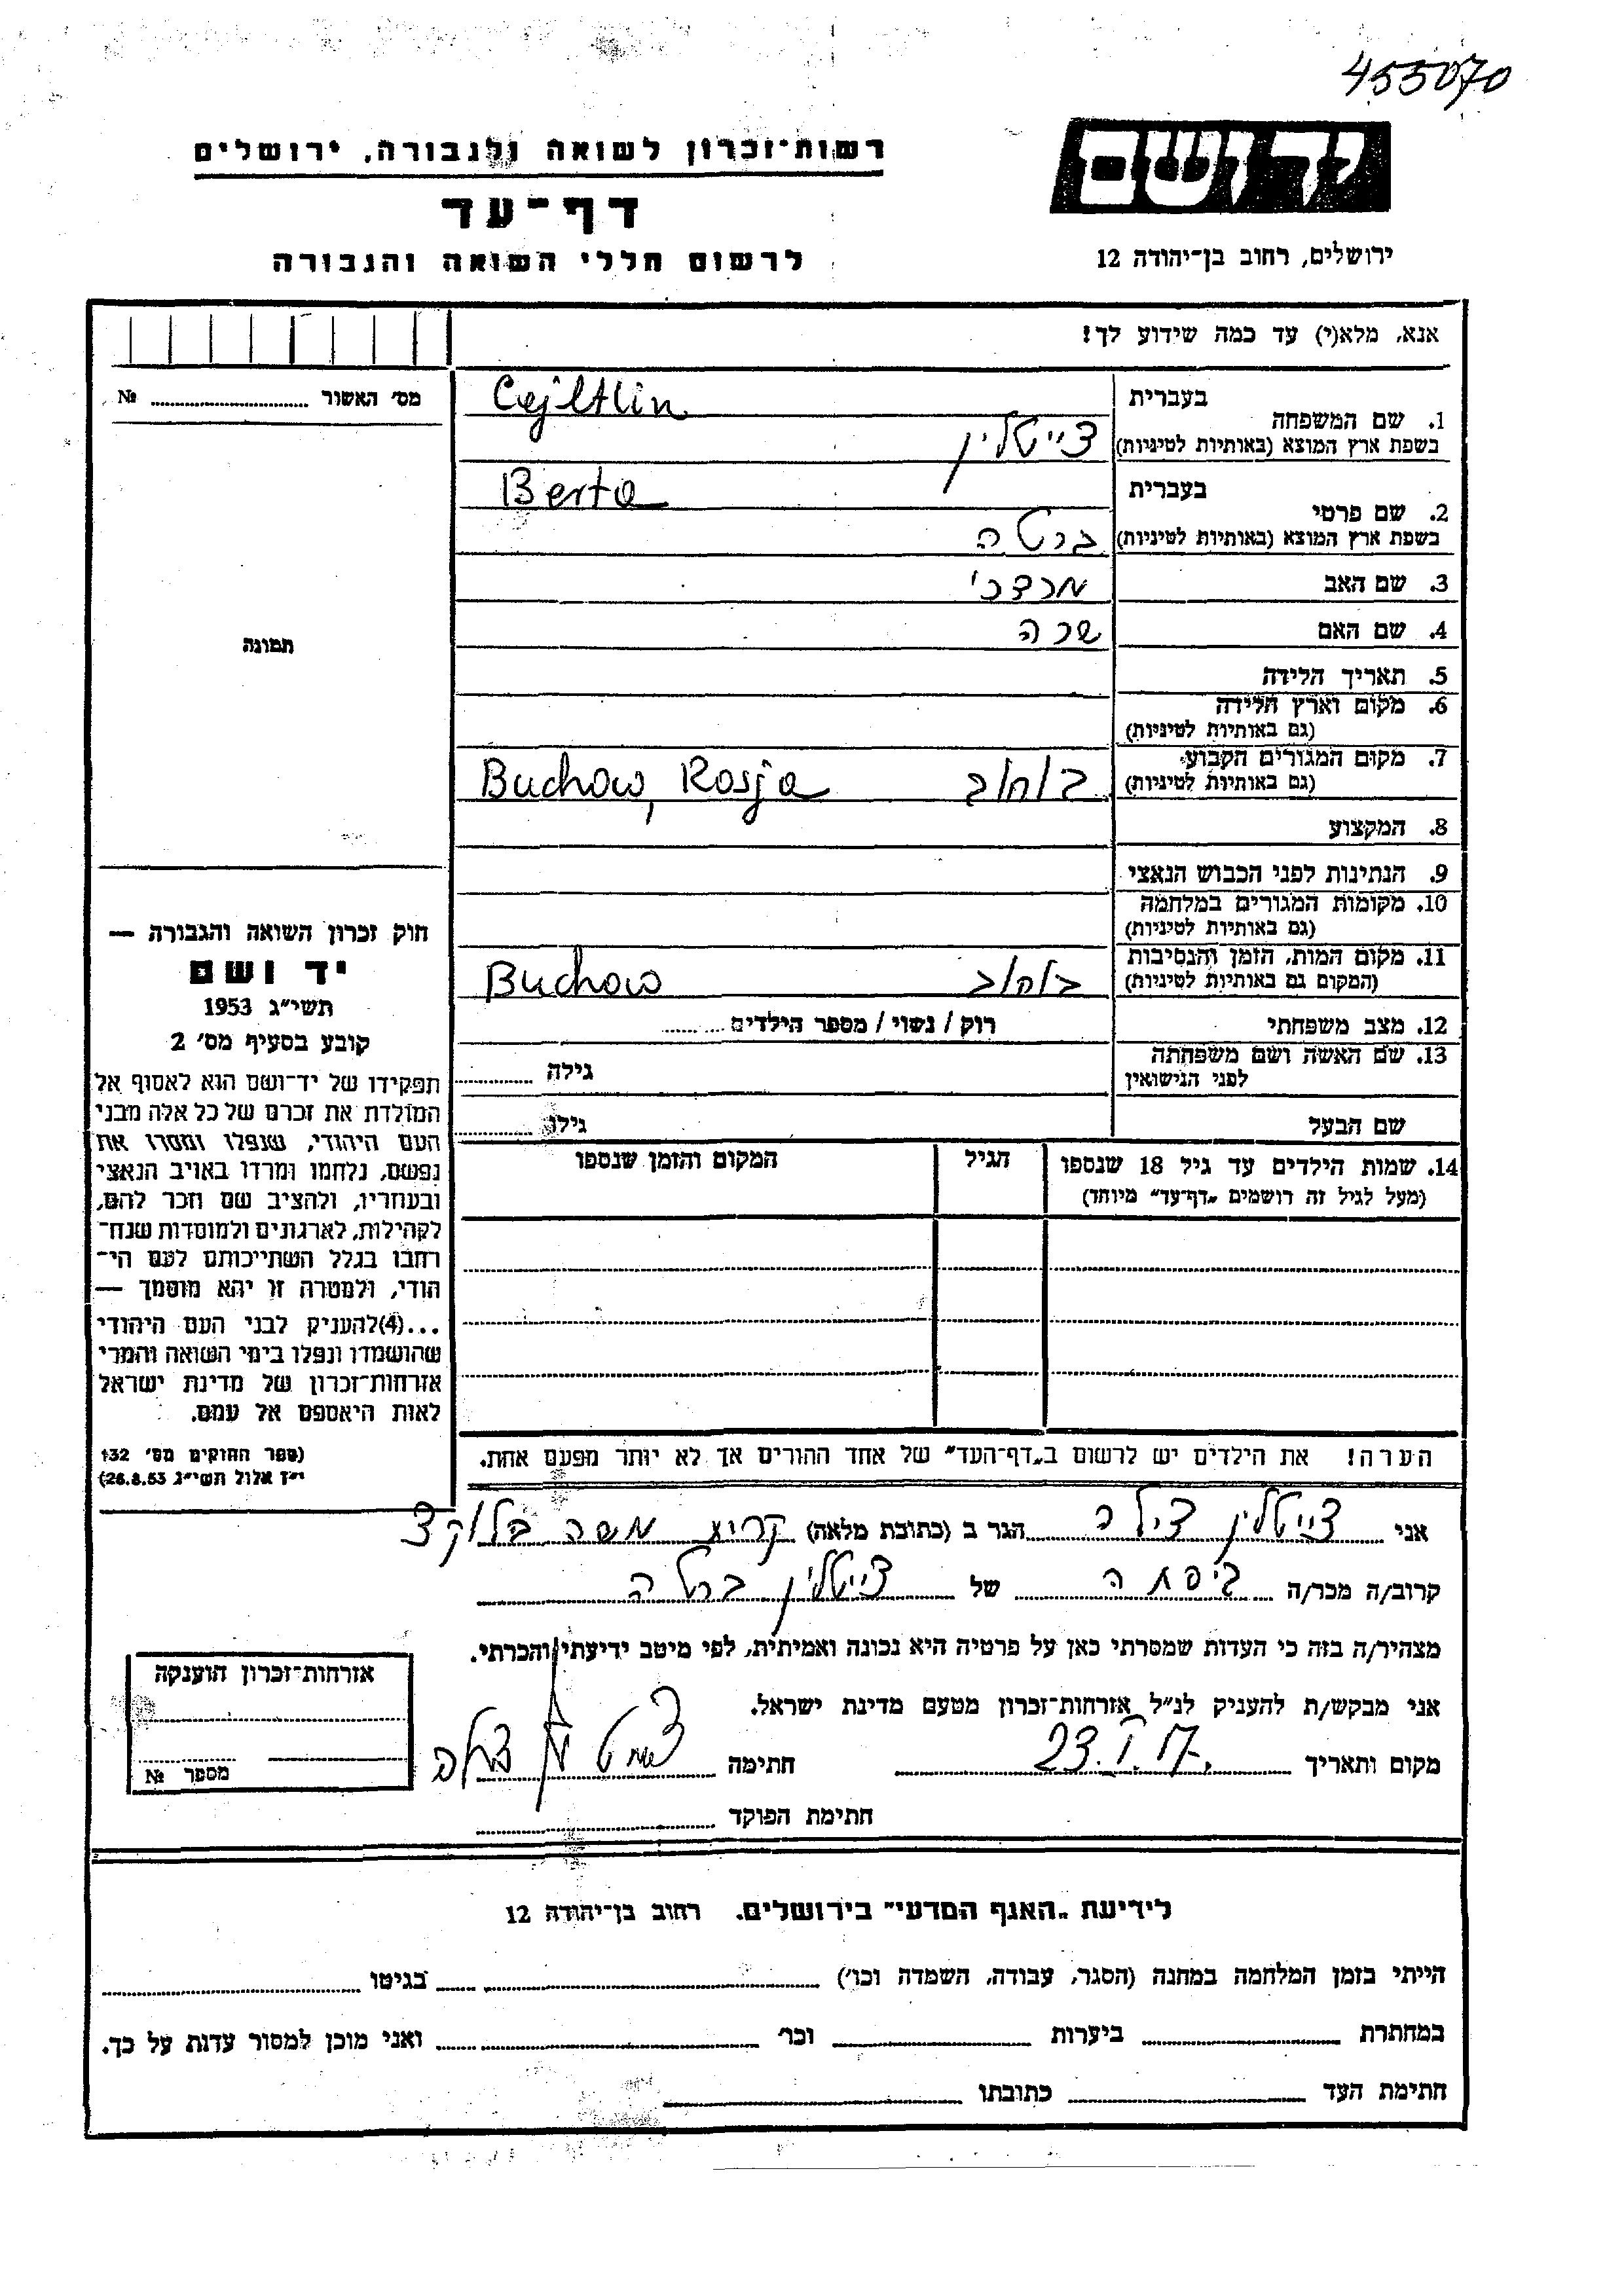 455070
יד ושם
רשות-זכרון לשואה ולגבורה, ירושלים
דף-עד
לרשום חללי השואה והגבורה
ירושלים, רחוב בן-יהודה 12
אנא, מלא(י) עד כמה שידוע לך!
מס' האשור № 
תמונה
1. שם המשפחה
בעברית
Cejltlin
בשפת ארץ המוצא (באותיות לטיניות)
צייטלין
2. שם פרטי
בעברית
Berta
בשפת ארץ המוצא (באותיות לטיניות)
ברטה
3. שם האב מרדכי
4. שם האם שרה
5. תאריך הלידה
6. מקום וארץ הלידה
(גם באותיות לטיניות)
7. מקום המגורים הקבוע
(גם באותיות לטיניות)
בוחוב Buchow, Rosja
8. המקצוע
9. הנתינות לפני הכבוש הנאצי
10. מקומות המגורים במלחמה
(גם באותיות לטיניות)
11. מקום המות, הזמן והנסיבות
(המקום גם באותיות לטיניות)
בוחוב Buchow
12. מצב משפחתי רוק / נשוי / מספר הילדים
13. שם האשה ושם משפחתה
לפני הנישואין
גילה
שם הבעל גילו
14. שמות הילדים עד גיל 18 שנספו הגיל המקום והזמן שנספו
(מעל לגיל זה רושמים "דף-עד" מיוחד)
חוק זכרון השואה והגבורה —
יד ושם
תשי"ג 1953
קובע בסעיף מס' 2
תפקידו של יד-ושם הוא לאסוף אל
המולדת את זכרם של כל אלה מבני
העם היהודי, שנפלו ומסרו את
נפשם, נלחמו ומרדו באויב הנאצי
ובעוזריו, ולהציב שם וזכר להם,
לקהילות, לארגונים ולמוסדות שנח-
רבו בגלל השתייכותם לעם הי-
הודי, ולמטרה זו יהא מוסמך —
...(4)להעניק לבני העם היהודי
שהושמדו ונפלו בימי השואה והמרי
אזרחות-זכרון של מדינת ישראל
לאות היאספם אל עמם.
(ספר החוקים מס' 132
י"ז אלול תשי"ג 26.8.53)
הערה! את הילדים יש לרשום ב"דף-העד" של אחד ההורים אך לא יותר מפעם אחת.
אני צייטלין צילה הגר ב (כתובת מלאה) קרית משה בלוק 3
קרוב/ה מכר/ה גיסתה של צייטלין ברטה
מצהיר/ה בזה כי העדות שמסרתי כאן על פרטיה היא נכונה ואמיתית, לפי מיטב ידיעתי והכרתי.
אני מבקש/ת להעניק לנ"ל אזרחות-זכרון מטעם מדינת ישראל.
מקום ותאריך 23.I.57. חתימה צייטלין צילה
חתימת הפוקד
אזרחות-זכרון הוענקה
מספר №
לידיעת "האגף המדעי" בירושלים. רחוב בן-יהודה 12
הייתי בזמן המלחמה במחנה (הסגר, עבודה, השמדה וכו') בגיטו
במחתרת ביערות וכו' ואני מוכן למסור עדות על כך.
חתימת העד כתובתו